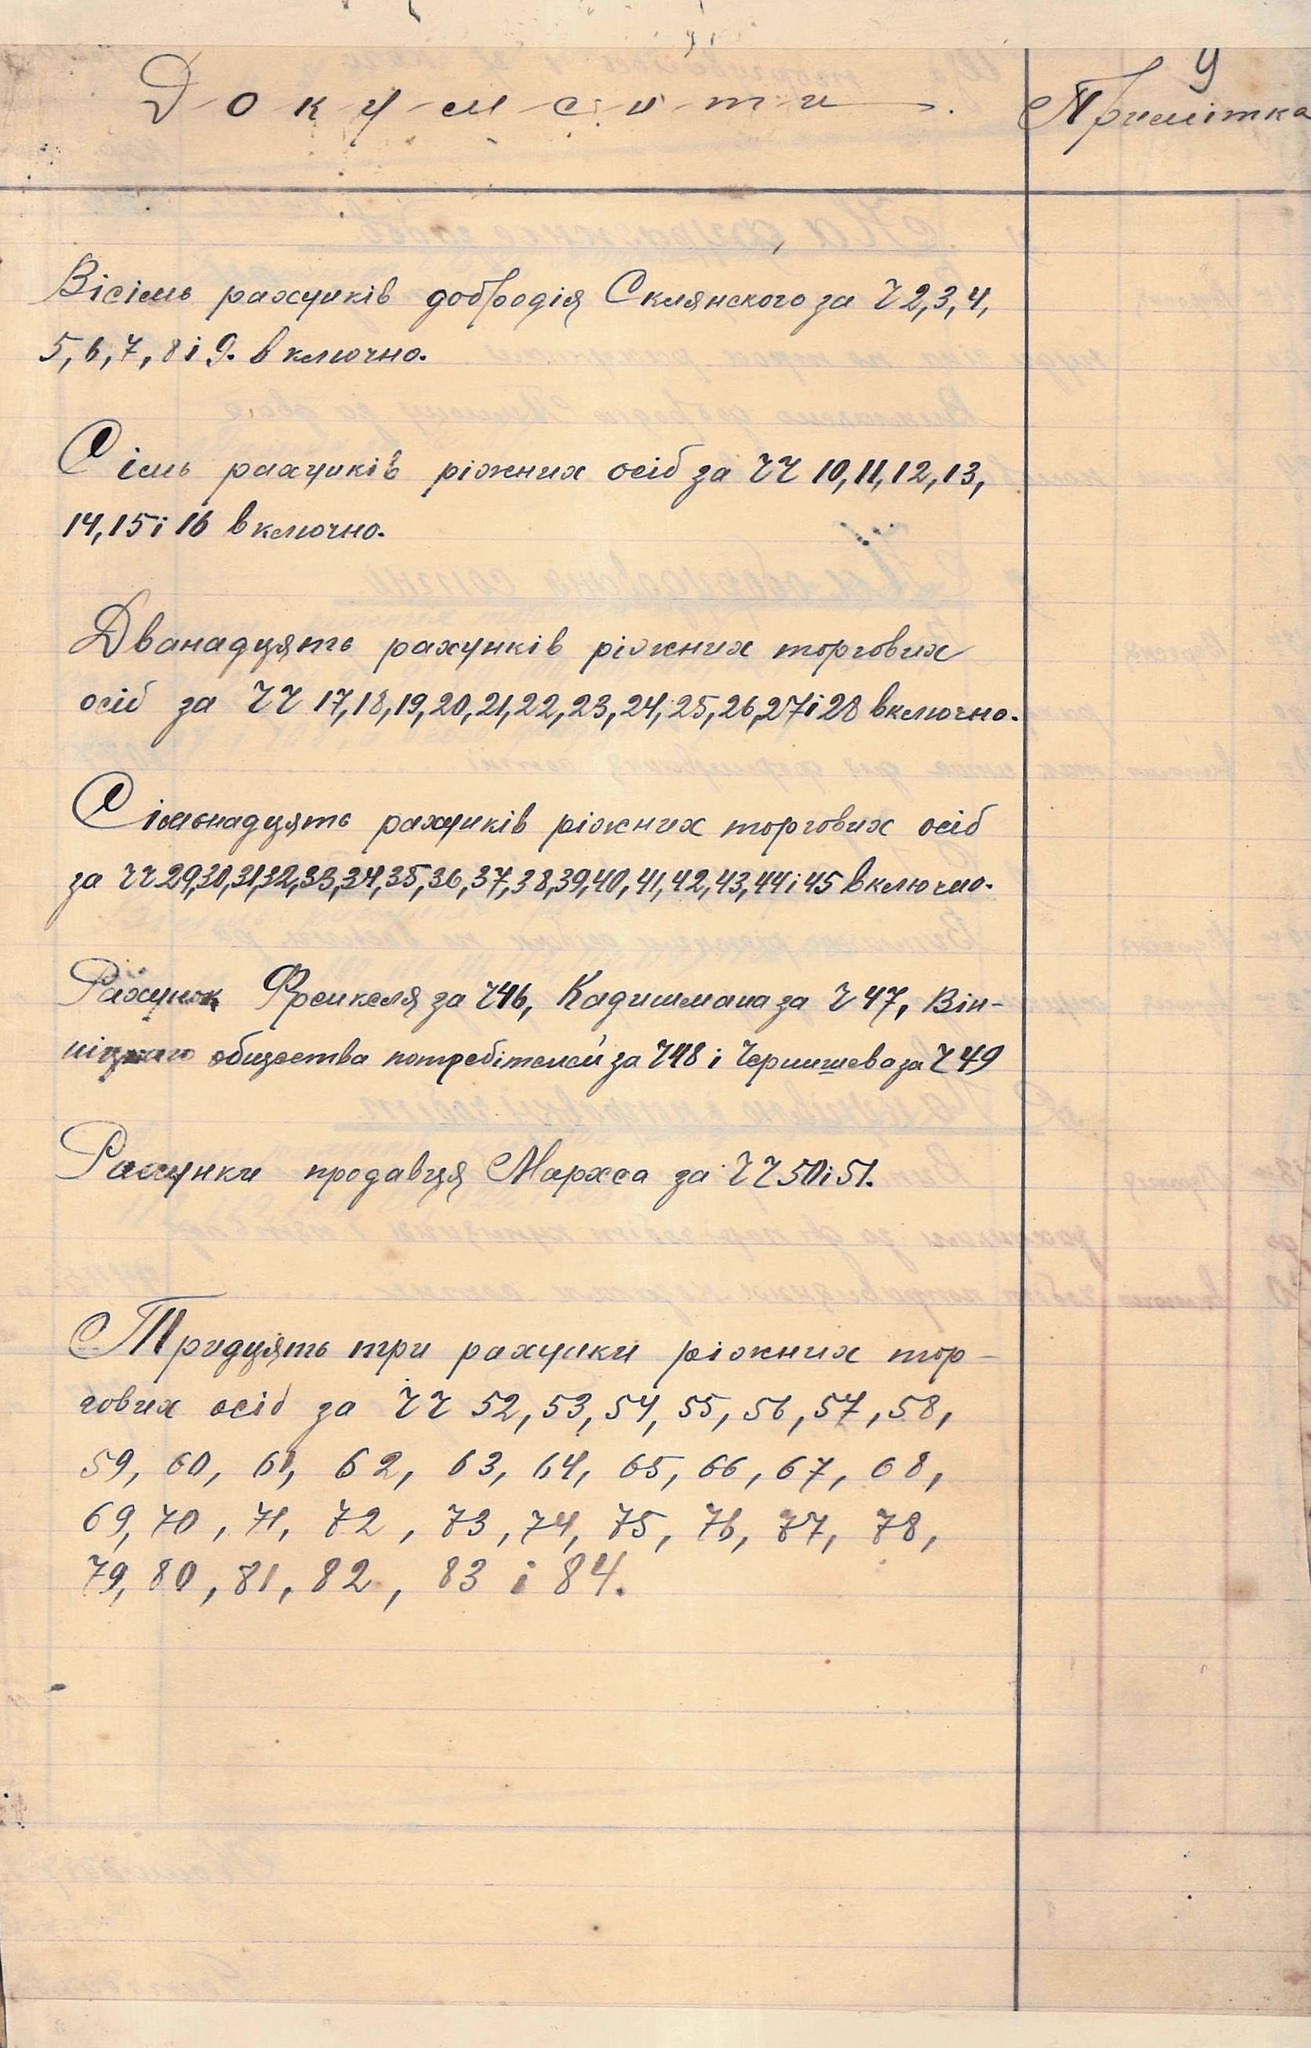 9
Документи. Примітка
Вісімь рахунків добродія Склянского за Ч 2, 3, 4,
5, 6, 7, 8 і 9. включно.
Сімь рахунків ріжних осіб за ЧЧ 10, 11, 12, 13,
14, 15 і 16 включно.
Дванадцять рахунків ріжних торгових
осіб за ЧЧ 17, 18, 19, 20, 21, 22, 23, 24, 25, 26, 27 і 28 включно.
Сімьнадцять рахунків ріжних торгових осіб
за ЧЧ 29, 30, 31, 32, 33, 34, 35, 36, 37, 38, 39, 40, 41, 42, 43, 44 і 45 включно.
Рахунок Френкеля за Ч 46, Кадишмана за Ч 47, Він-
общества потребітелей за Ч 48 і Чернишева за Ч 49
Рахунки продавця Мархеа за ЧЧ 50 і 51.
Тридцять три рахунки ріжних тор-
гових осіб за ЧЧ 52, 53, 54, 55, 56, 57, 58,
59, 60, 61, 62, 63, 64, 65, 66, 67, 68,
69, 70, 71, 72, 73, 74, 75, 76, 77, 78,
79, 80, 81, 82, 83 і 84.